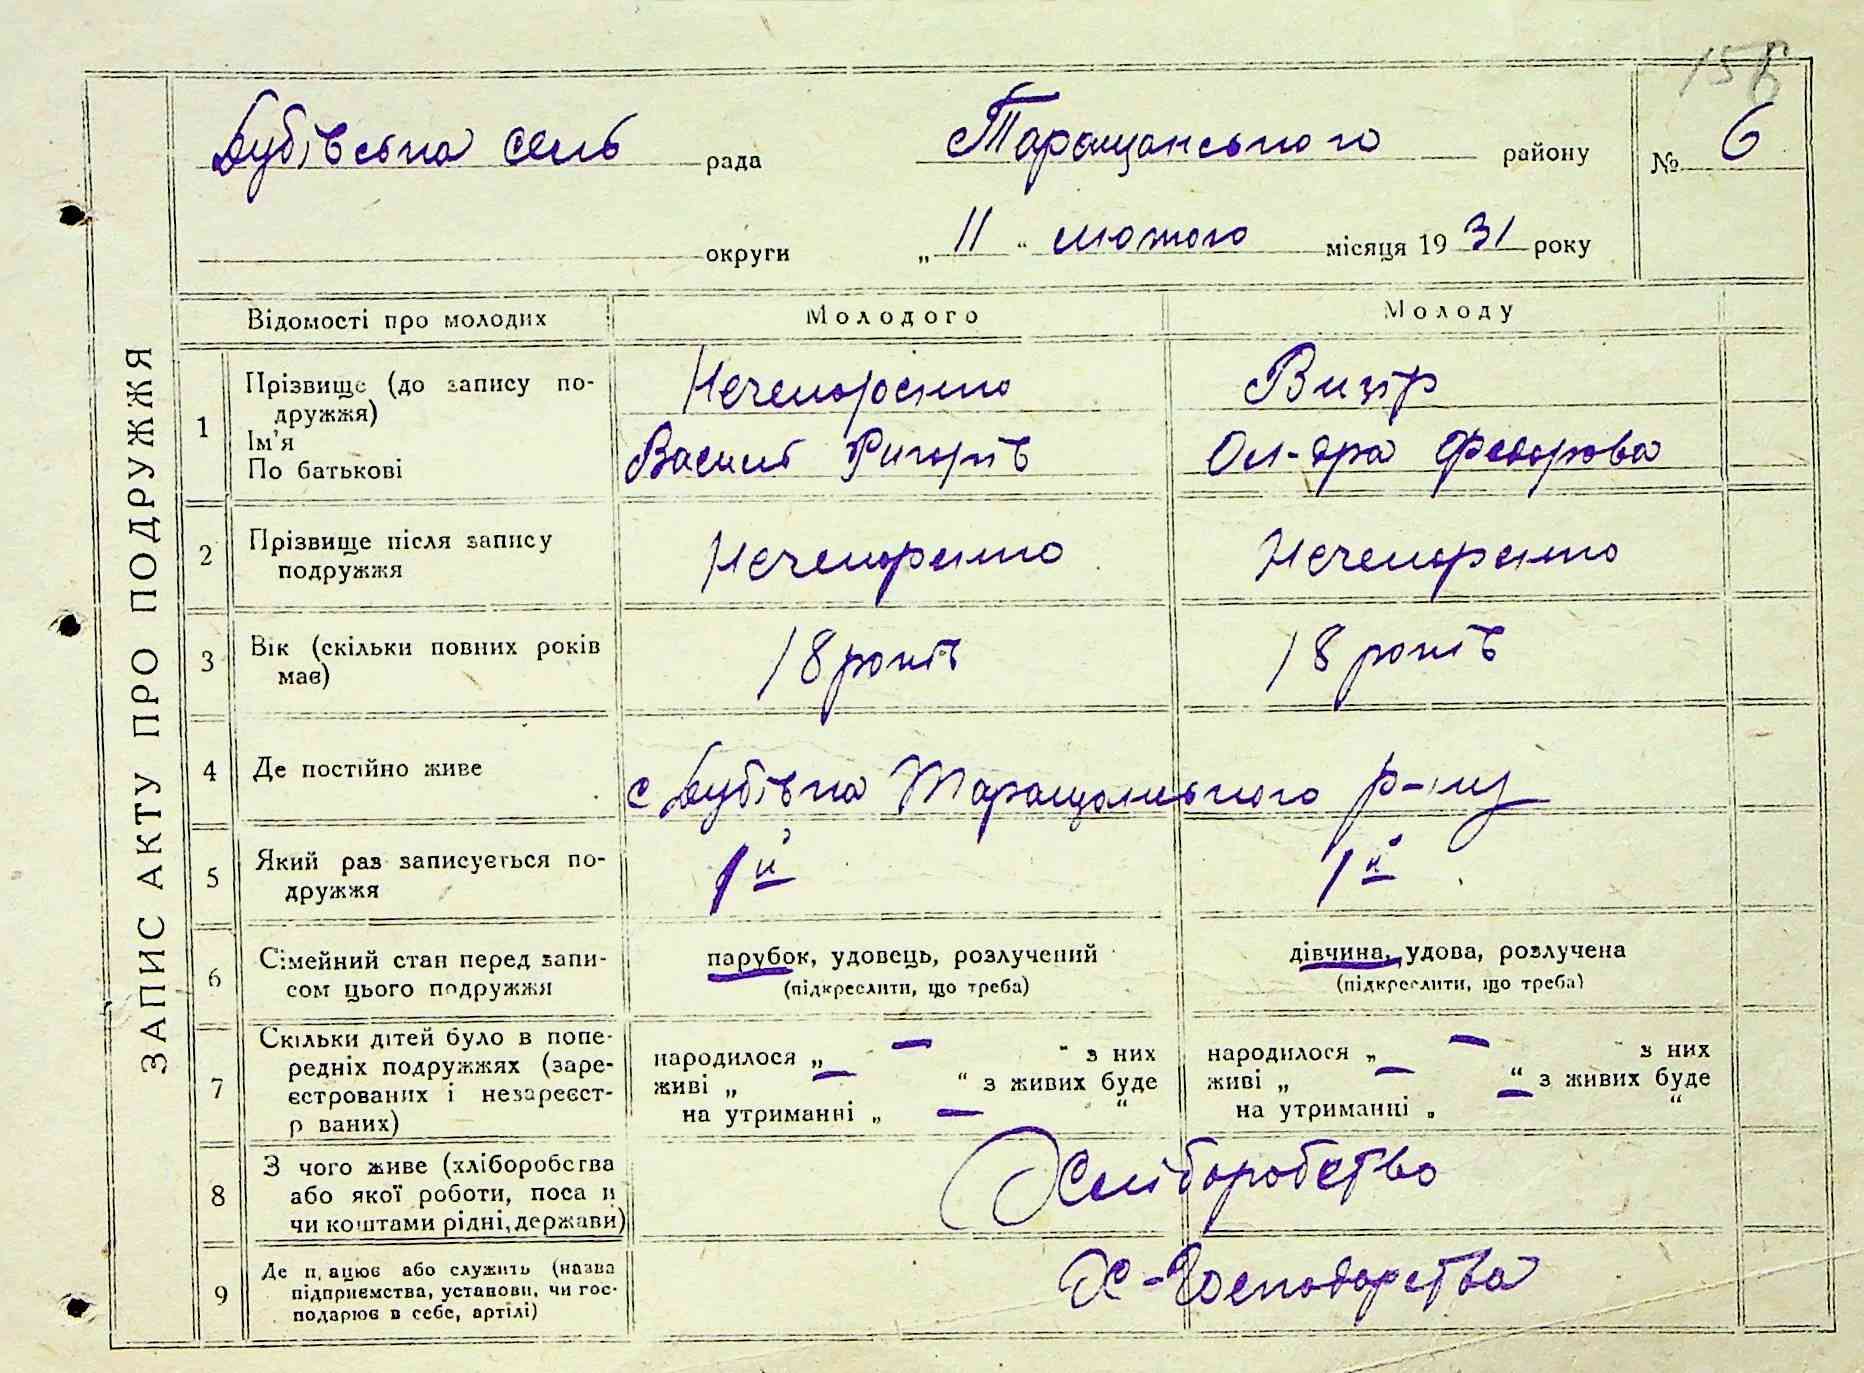 156
Дубівська сель рада Таращанського району № 6
округи „ 11 “ лютого місяця 19 31 року
ЗАПИС АКТУ ПРО ПОДРУЖЖЯ
Відомості про молодих Молодого Молоду
1 Прізвище (до запису по-
дружжя)
Ім'я
По батькові
Нечепоренко Вицір
Василь Григорів Ол-дра Федорова
2 Прізвище після запису
подружжя
Нечепоренко Нечепоренко
3 Вік (скільки повних років
має)
18 років 18 років
4 Де постійно живе с Дубівка Таращанського р-ну
5 Який раз записується по-
дружжя
1й 1й
6 Сімейний стан перед запи-
сом цього подружжя
парубок, удовець, розлучений дівчина, удова, розлучена
(підкреслити, що треба) (підкреслити, що треба)
7 Скільки дітей було в попе-
редніх подружжях (заре-
єстрованих і незареєст-
р ваних)
народилося „ — “ з них народилося „ — “ з них
живі „ — “ з живих буде живі „ — “ з живих буде
на утриманні „ — “ на утриманні „ — “
8 З чого живе (хліборобства
або якої роботи, поса и
чи коштами рідні, держави)
Хліборобство
9 Де п, ацює або служить (назва
підприємства, установи, чи гос-
подарює в себе, артілі)
Х-Господарства